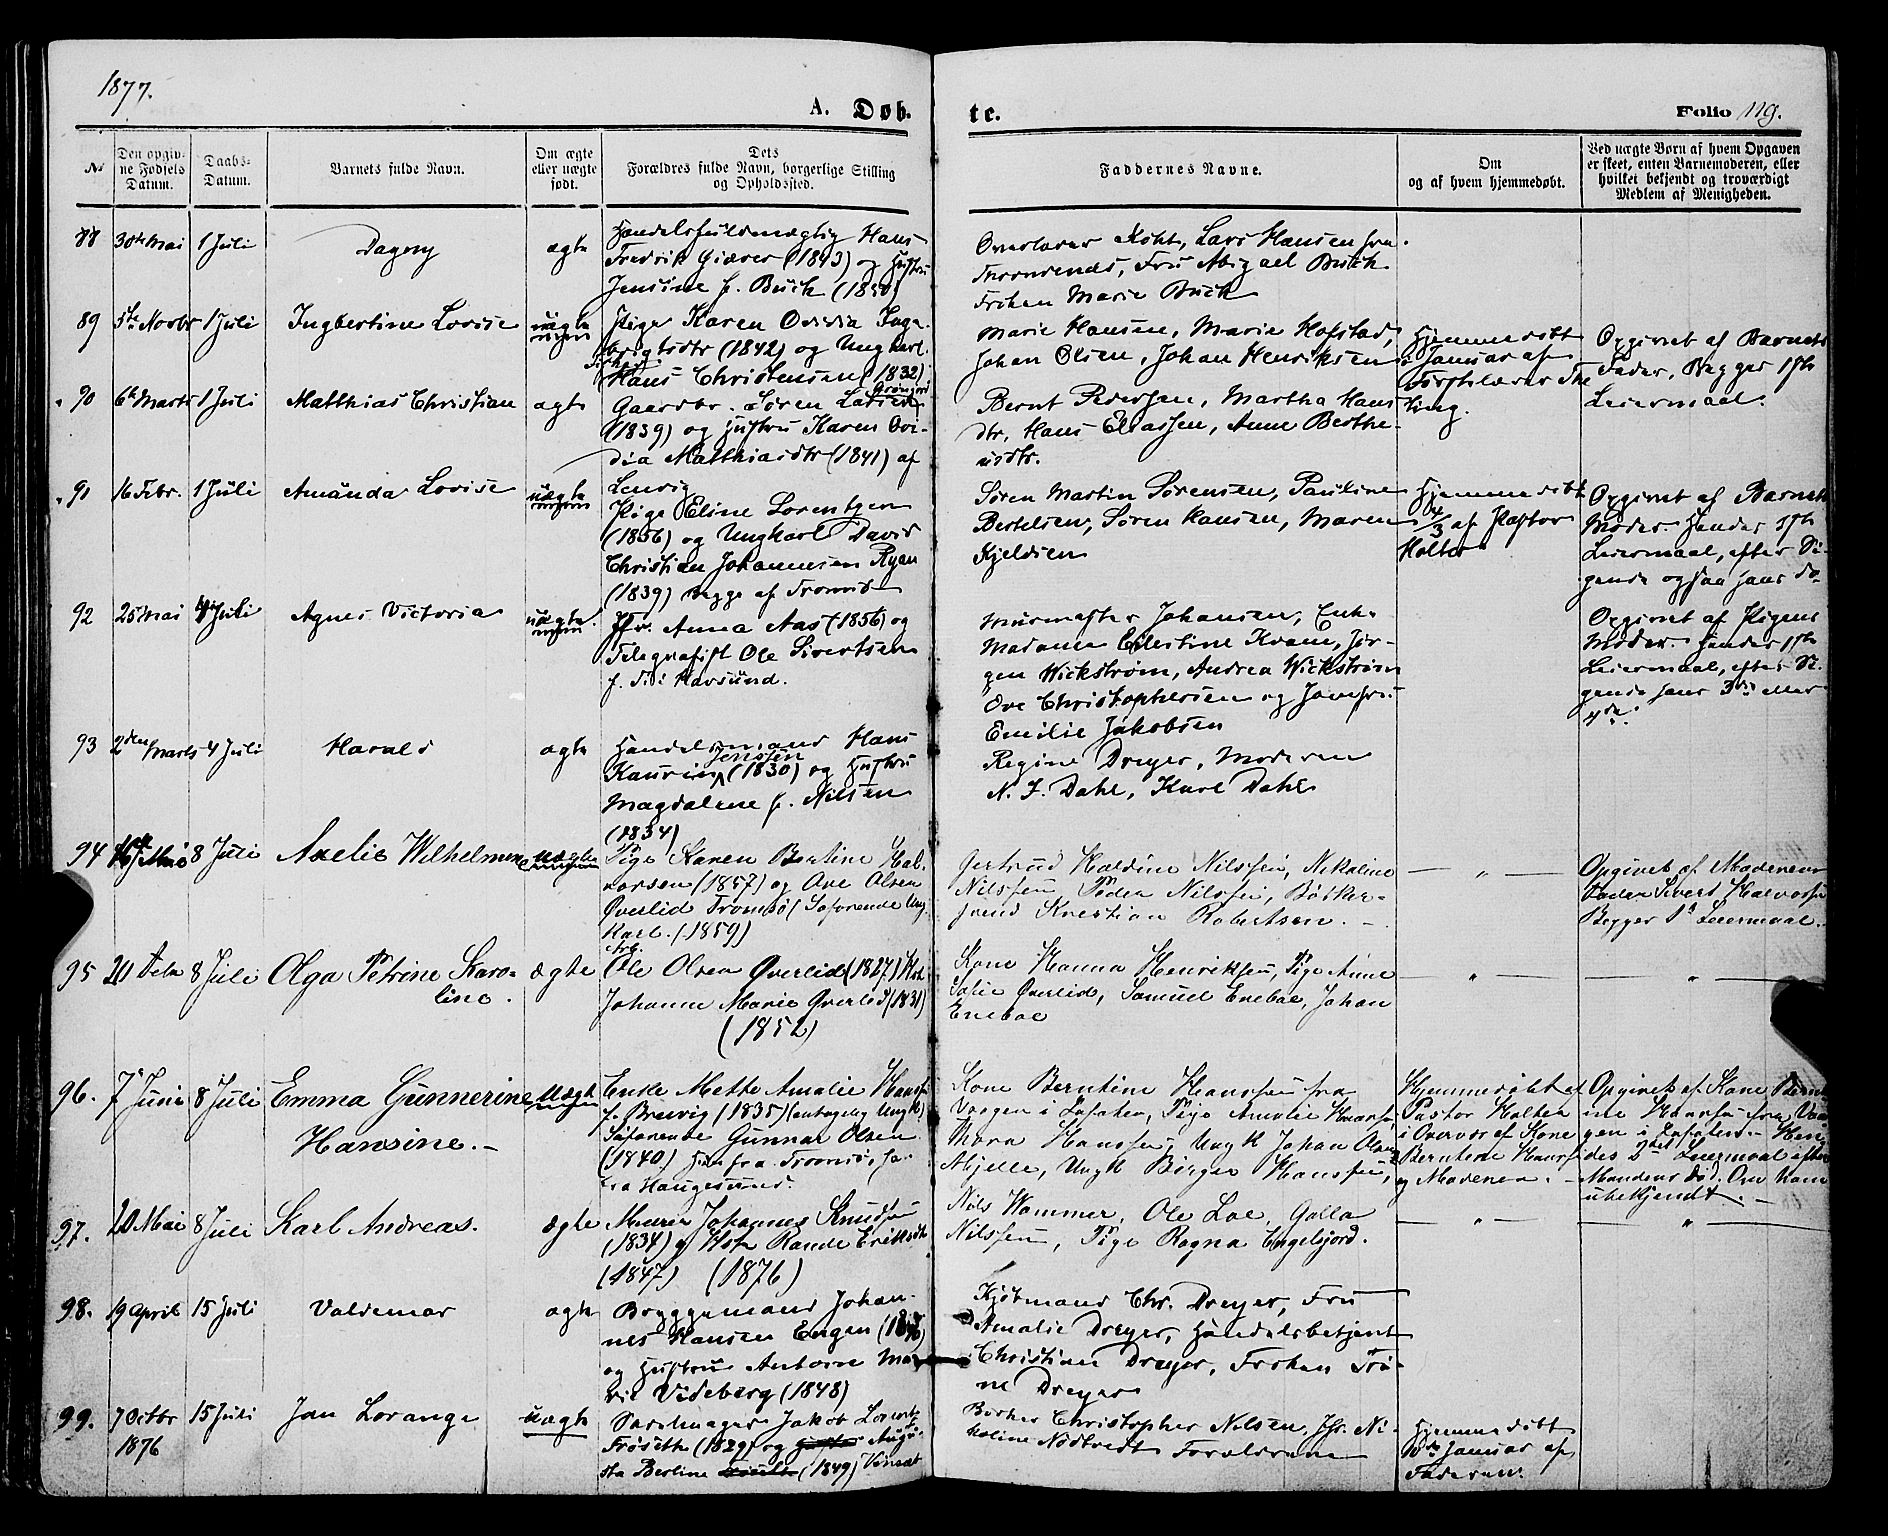 1877.
A. Døb. te. Folio 119.
№
Den opgiv-
ne Fødsels
Datum.
Daabs-
Datum.
Barnets fulde Navn.
Om ægte
eller uægte
født.
Dets
Forældres fulde Navn, borgerlige Stilling
og Opholdssted.
Faddernes Navne.
Om
og af hvem hjemmedøbt.
Ved uægte Børn af hvem Opgaven
er skeet, enten Barnemoderen, eller
hvilket bekjendt og troværdigt
Medlem af Menigheden.
88 30te Mai 1 Juli Dagny ægte
Handelsfuldmægtig Hans
Fredrik Giæver (1843) og Hustru
Jensine f. Buck (1850)
Overlærer Kokt, Lars Hansen fra
Throndenæs, Fru Abigael Buck
Frøken Marie Buck
89 5te Novbr 1 Juli Ingbertine Lovise uægte
Pige Karen Ovidia Inge-
brigtsdtr (1842) og Ungkarl
Fisker
Hans Christensen (1832)
Marie Hansen, Marie Hofstad,
Johan Olsen, Johan Henriksen
Hjemmedøbt
i Januar af
Forstlærer The
ling.
Opgivet af Barnets
Fader, Begges 1ste
Leiermaal.
90 6te Marts 1 Juli Matthias Christian ægte
Gaardbr. Søren Larsen
(1839) og Hustru Karen Ovi-
dia Matthiasdtr (1841) af
Lenvig
Bernt Pedersen, Martha Hans
dtr, Hans Eliassen, Anne Berthe-
usdtr.
91 16 Febr. 1 Juli Amanda Lovise uægte
Pige Eline Lorentzen
(1856) og Ungkarl David
Christian Johannesen Ryan
(1839) begge af Tromsø
Søren Martin Sørensen, Pauline
Bertelsen, Søren Hansen, Maren
Kjeldsen
Hjemmedøbt
4/3 af Pastor
Holter
Opgivet af Barnets
Moder. Hendes 1ste
Leiermaal, efter Si-
gende ogsaa hans do-
92 25 Mai 4 Juli Agnes Victoria uægte
Jfr. Anna Aas (1856) og
Telegrafist Ole Sivertsen
f. T. i Havsund.
Murmester Johansen, Enke
Madame Celestine Kvam, Jør-
gen Wickstrøm, Andrea Wickstrøm
Ove Christophersen og Jomfru
Emilie Jakobsen
Opgivet af Pigens
Moder. Hendes 1ste
Leiermaal, efter Si-
gende hans 3die eller
4de.
93 2den Marts 4 Juli Harald ægte
Handelsmand Hans
Jenssen
Kaurin (1830) og Hustru
Magdalene f. Nilsen
(1834)
Regine Dreyer, Moderen
N. J. Dahl, Karl Dahl
94 16 Mai 8 Juli Axelie Wilhelmine uægte
Pige Karen Bertine Hal-
vorsen (1857) og Ove Olsen
Øverlid Tromsø (Søfarende Ung-
karl. (1859)
Gertrud Haldine Nilssen, Nikoline
Nilssen, Peder Nilssen, Bødker-
svend Kristian Robertsen. -
— " —
Opgivet af Moderens
Fader Sivert Halvorsen
Begges 1ste Leiermaal.
95 20 Febr 8 Juli Olga Petrine Karo-
line. ægte
Arb.
Ole Olsen Øverlid (1827) Hst
Johanne Marie Øverlid (1831)
(1852)
Kone Hanna Henriksen, Pige Anne
Sofie Øverlid, Samuel Enebae, Johan
Enebae
— " —
— " —
96. 7 Juni 8 Juli Emma Gunnerine
Hansine. - uægte
Enke Mette Amalie Hanssen
f. Brevig (1835) (antagelig Ungk.)
Søfarende Gunnar Olsen
(1840) Hun fra Tromsø, han
fra Haugesund.
Kone Berntine Hanssen fra
Vaagen i Lofoten, Pige Amalie Hanssen,
Mora Hanssen, Ungk Johan Olsen
Mjelle, Ungk Birger Hanssen,
Hjemmedøbt af
Pastor Holter
i Overvær af Kone
Berntine Hanssen
og Moderen. -
Opgivet af Kone Bernti
ne Hanssen fra Vaa-
gen i Lofoten. - Hen-
des 2det Leiermaal efter
Mandens Død. Om ham
ubekjendt. -
97. 20 Mai 8 Juli Karl Andreas. ægte
Murer Johannes Knudsen
(1834) og Hst Rande Eriksdtr
(1847) (1876)
Nils Wammer, Ole Loe, Golla
Nilssen, Pige Ragna Engelsjord.
— " —
— " —
98. 19 April 15 Juli Valdemar ægte
Bryggemand Johan-
nes Hansen Engen
og Hustru Antoine Ma-
rie Videberg (1848)
Kjøbmand Chr. Dreyer, Fru
Amalie Dreyer, Handelsbetjent
Christian Dreyer, Frøken Tri-
ne Dreyer
99. 7 Octbr
1876 15 Juli Jan Lorange uægte
Sadelmager Jakob Lorentz
Frosetth (1829) og Augu-
sta Berline (1849)
Bødker Christopher Nilsen, Jfr. Ni-
koline Nødtvedt Forældrene
Hjemmedøbt
Januar af
Faderen.